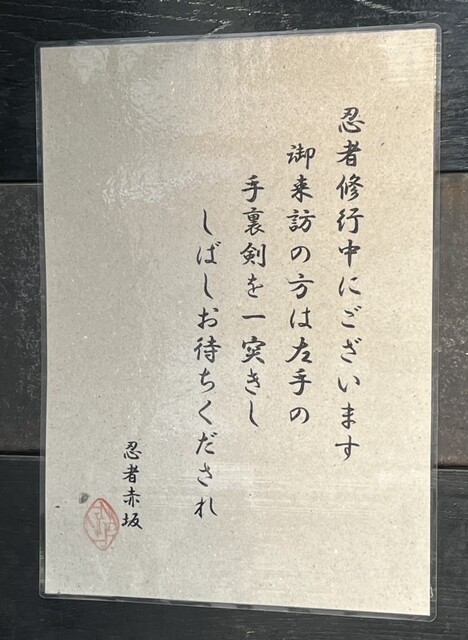 忍者修行中にございます
御来訪の方は左手の
手裏剣を一突きし
しばしお待ちくだされ
忍者赤坂